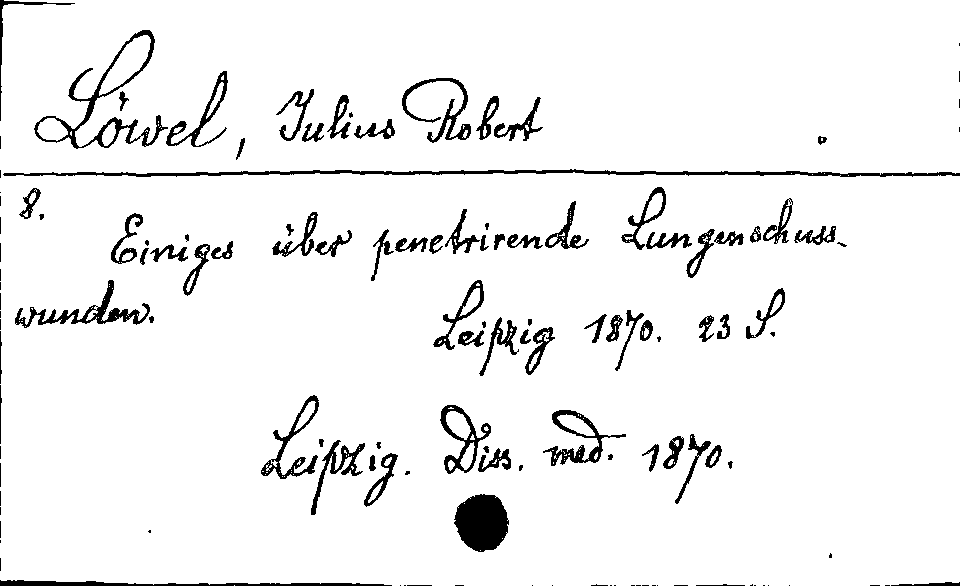 Löwel, Julius Robert
8.
Einiges über penetrirende Lungenschuss-
wunden.
Leipzig 1870. 23 S.
Leipzig. Diss. med. 1870.